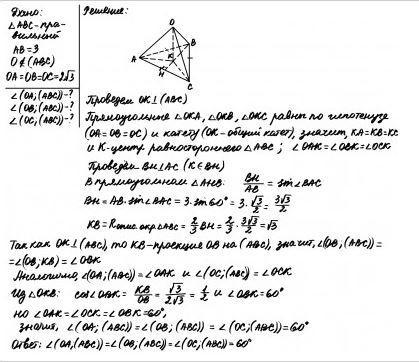 Дано:
△ABC-пра-
вильный
AB=3
O∉(ABC)
OA=OB=OC=2√3
∠(OA;(ABC))-?
∠(OB;(ABC))-?
∠(OC;(ABC))-?
Решение:
O
B
A
K
H
C
Проведем OK⊥(ABC)
Прямоугольные △OKA, △OKB, △OKC равны по гипотенузе
(OA=OB=OC) и катету (OK-общий катет), значит, KA=KB=KC
и K-центр равностороннего △ABC; ∠OAK=∠OBK=∠OCK
Проведём BH⊥AC (K∈BH)
В прямоугольном △AHB: BH/AB = sin∠BAC
BH=AB·sin∠BAC=3·sin60°=3·√3/2=3√3/2
KB=Rопис.окр.△ABC=2/3BH=2/3·3√3/2=√3
Так как OK⊥(ABC), то KB-проекция OB на (ABC), значит, ∠(OB;(ABC))=
=∠(OB;KB)=∠OBK
Аналогично, ∠(OA;(ABC))=∠OAK и ∠(OC;(ABC))=∠OCK
Из △OKB: cos∠OBK=KB/OB=√3/2√3=1/2 и ∠OBK=60°
но ∠OAK=∠OCK=∠OBK=60°,
значит, ∠(OA;(ABC))=∠(OB;(ABC))=∠(OC;(ABC))=60°
Ответ: ∠(OA;(ABC))=∠(OB;(ABC))=∠(OC;(ABC))=60°